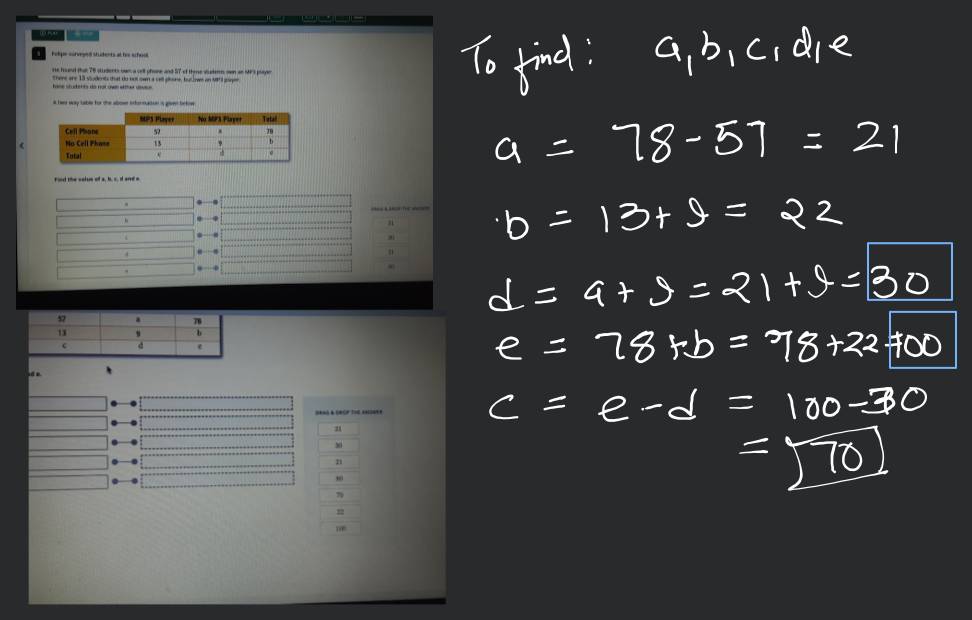 PLAY
STOP
3
Felipe surveyed students at his school.
He found that 78 students own a cell phone and 57 of those students own an MP3 player.
There are 13 students that do not own a cell phone, but own an MP3 player.
Nine students do not own either device.
A two way table for the above information is given below:
MP3 Player No MP3 Player Total
Cell Phone 57 a 78
No Cell Phone 13 9 b
Total c d e
Find the value of a, b, c, d and e.
a
b
c
d
e
DRAG & DROP THE ANSWER
31
30
21
80
57 a 78
13 9 b
c d e
nd e.
DRAG & DROP THE ANSWER
31
30
21
80
70
22
100
To find: a, b, c, d, e
a = 78-57 = 21
b = 13+9 = 22
d = a+9 = 21+9 = 30
e = 78+b = 78+22 = 100
c = e-d = 100-30
= 70